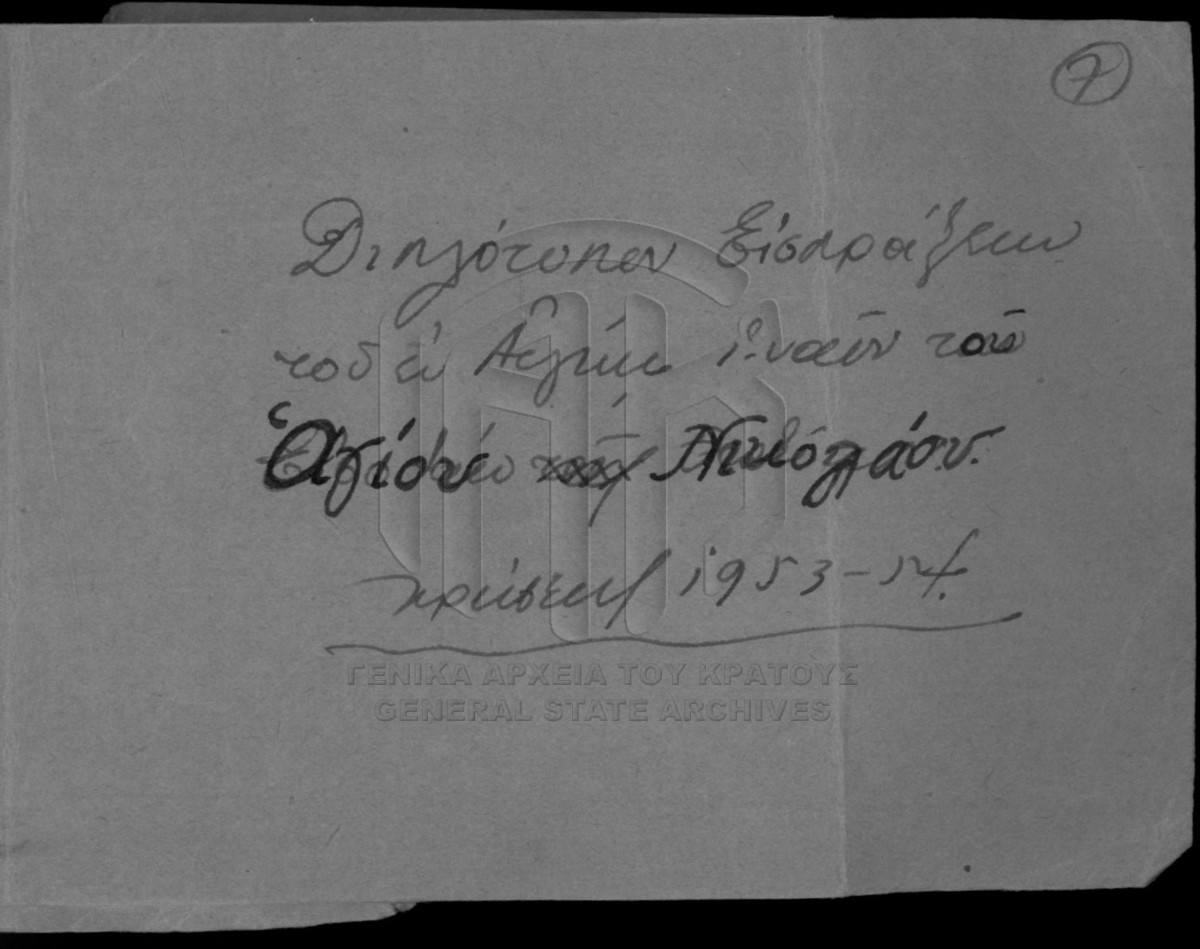 7
Διπλότυπον Εἰσπράξεων
τοῦ ἐν
τοῦ
Ἁγίου Νικολάου.
χρήσεως 1953-54.
ΓΕΝΙΚΑ ΑΡΧΕΙΑ ΤΟΥ ΚΡΑΤΟΥΣ
GENERAL STATE ARCHIVES